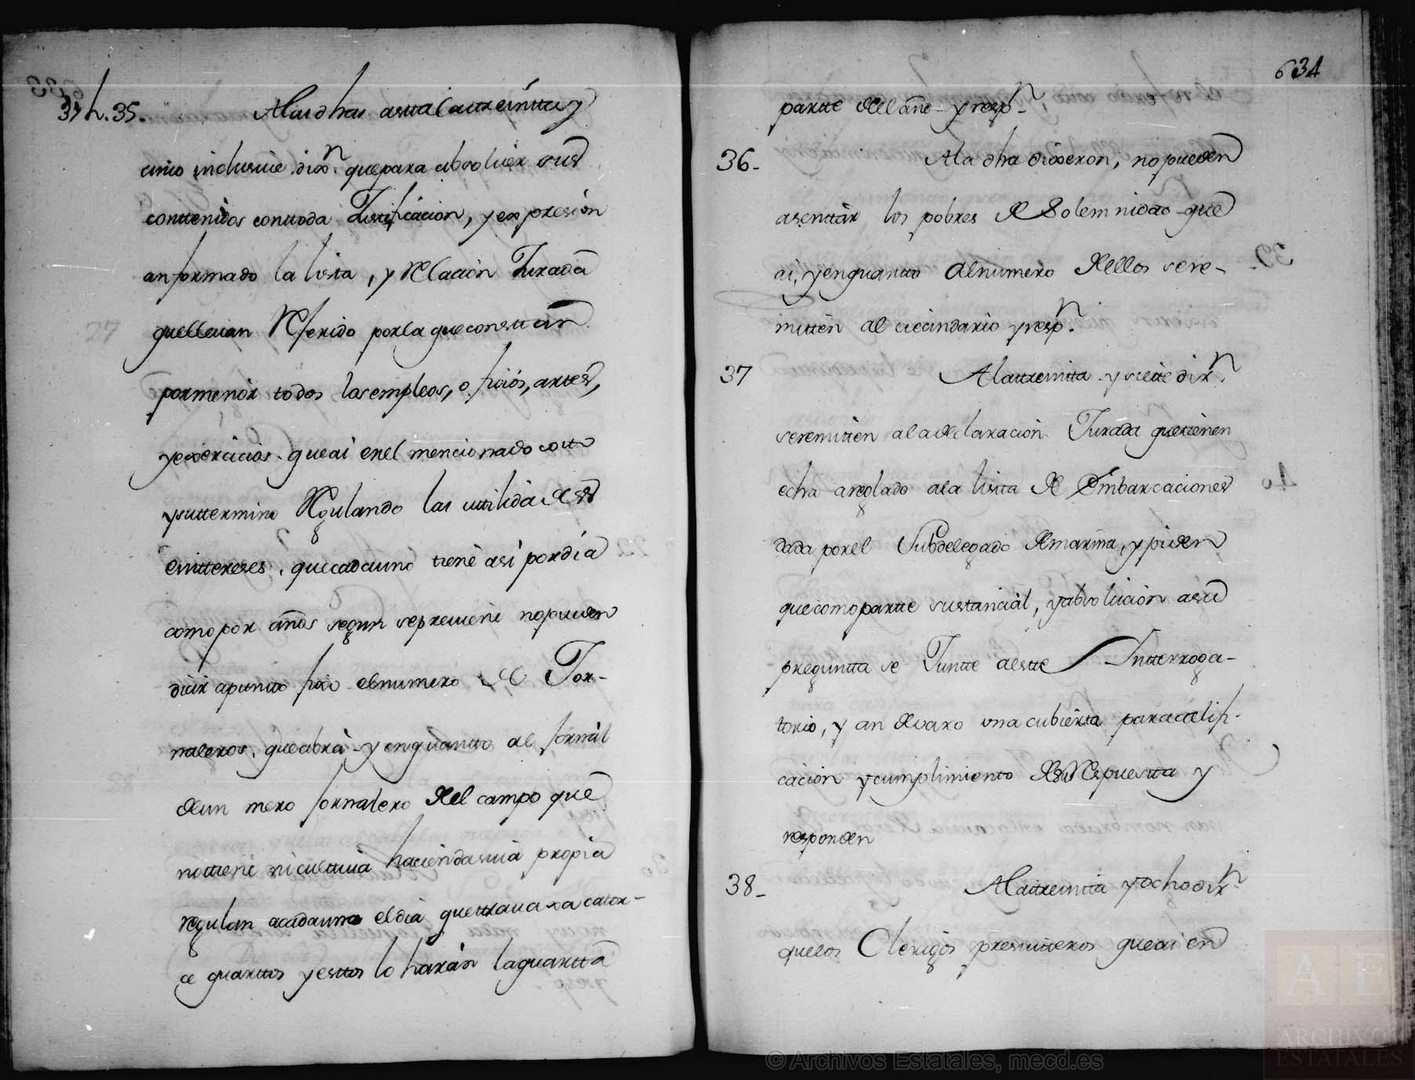 33 h. 35. A las dhas asta la treintta y
cinco inclusive dixn. que para absolver sus
conttenidos con toda Justificacion, y expresion
an formado la lista, y Relacion Jurada
que llevan Referido por la que constan
por menor todos los empleos, oficios, artes,
y exercicios que ai en el mencionado cotto
y su ttermino Regulando las uttilidades
e inttereses, que cada uno tiene asi por dia
como por años segun se previene no pueden
dicir a punto fixo el numero de Jor-
naleros, que abrà y en quantto al jornàl
de un mero jornalero del campo que
no ttiene ni culttiva haciendas suia propia
regulan a cada uno el dia que ttravaxa cator-
ce quarttos y esttos lo haràn la quartta
634
partte del año y resp.n
36- A la dha dixeron, no pueden
asenttàr los pobres de Solemnidad que
ai, y en quantto al numero de ellos se re-
mitten al vecindario y resp.n
37 A la ttreintta y siette dixn.
se remitten a la declaracion Jurada que tienen
echa arreglado a la lista de Embarcaciones
dada por el Subdelegado de marina, y piden
que como partte sustancial, y absolucion a su
pregunttta se Juntte a estte Intterroga-
torio, y an devaxo una cubierta para califi-
cacion y cumplimiento de su Respuestta y
responden
38- A la ttreintta y ocho dixn.
que los Clerigos presvitteros que ai en